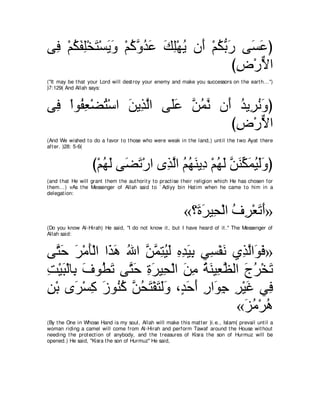 (عَسَى رَبُّكُمْ أَن يُهْلِكَ عَدُوَّكُمْ وَيَسْتَخْلِفَكُمْ فِى
الاٌّرْضِ)
("It may be that your Lord will destroy your enemy and make you successors on the earth...")
)7:129( And Allah says:
(وَنُرِيدُ أَن نَّمُنَّ عَلَى الَّذِينَ اسْتُضْعِفُواْ فِى
الاٌّرْضِ)
(And We wished to do a favor to those who were weak in the land,) until the two Ayat there
after. )28: 5-6(
(وَلَيُمَكِّنَنَّ لَهُمْ دِينَهُمُ الَّذِى ارْتَضَى لَهُمْ)
(and that He will grant them the authority to practise their religion which He has chosen for
them...) «As the Messenger of Allah said to `Adiyy bin Hatim when he came to him in a
delegation:
«أَتَعْرِفُ الْحِيرَةَ؟»
(Do you know Al-Hirah) He said, "I do not know it, but I have heard of it." The Messenger of
Allah said:
«فَوَالَّذِي نَفْسِي بِيَدِهِ لَيُتِمَّنَّ اللهُ هَذَا الْأَمْرَ حَتَّى
تَخْرُجَ الظَّعِينَةُ مِنَ الْحِيرَةِ حَتَّى تَطُوفَ بِالْبَيْتِ
فِي غَيْرِ جِوَارِ أَحَدٍ، وَلَتَفْتَحُنَّ كُنُوزَ كِسْرَى بْنِ
هُرْمُزَ»
(By the One in Whose Hand is my soul, Allah will make this matter )i.e., Islam( prevail until a
woman riding a camel will come from Al-Hirah and perform Tawaf around the House without
needing the protection of anybody, and the treasures of Kisra the son of Hurmuz will be
opened.) He said, "Kisra the son of Hurmuz" He said,